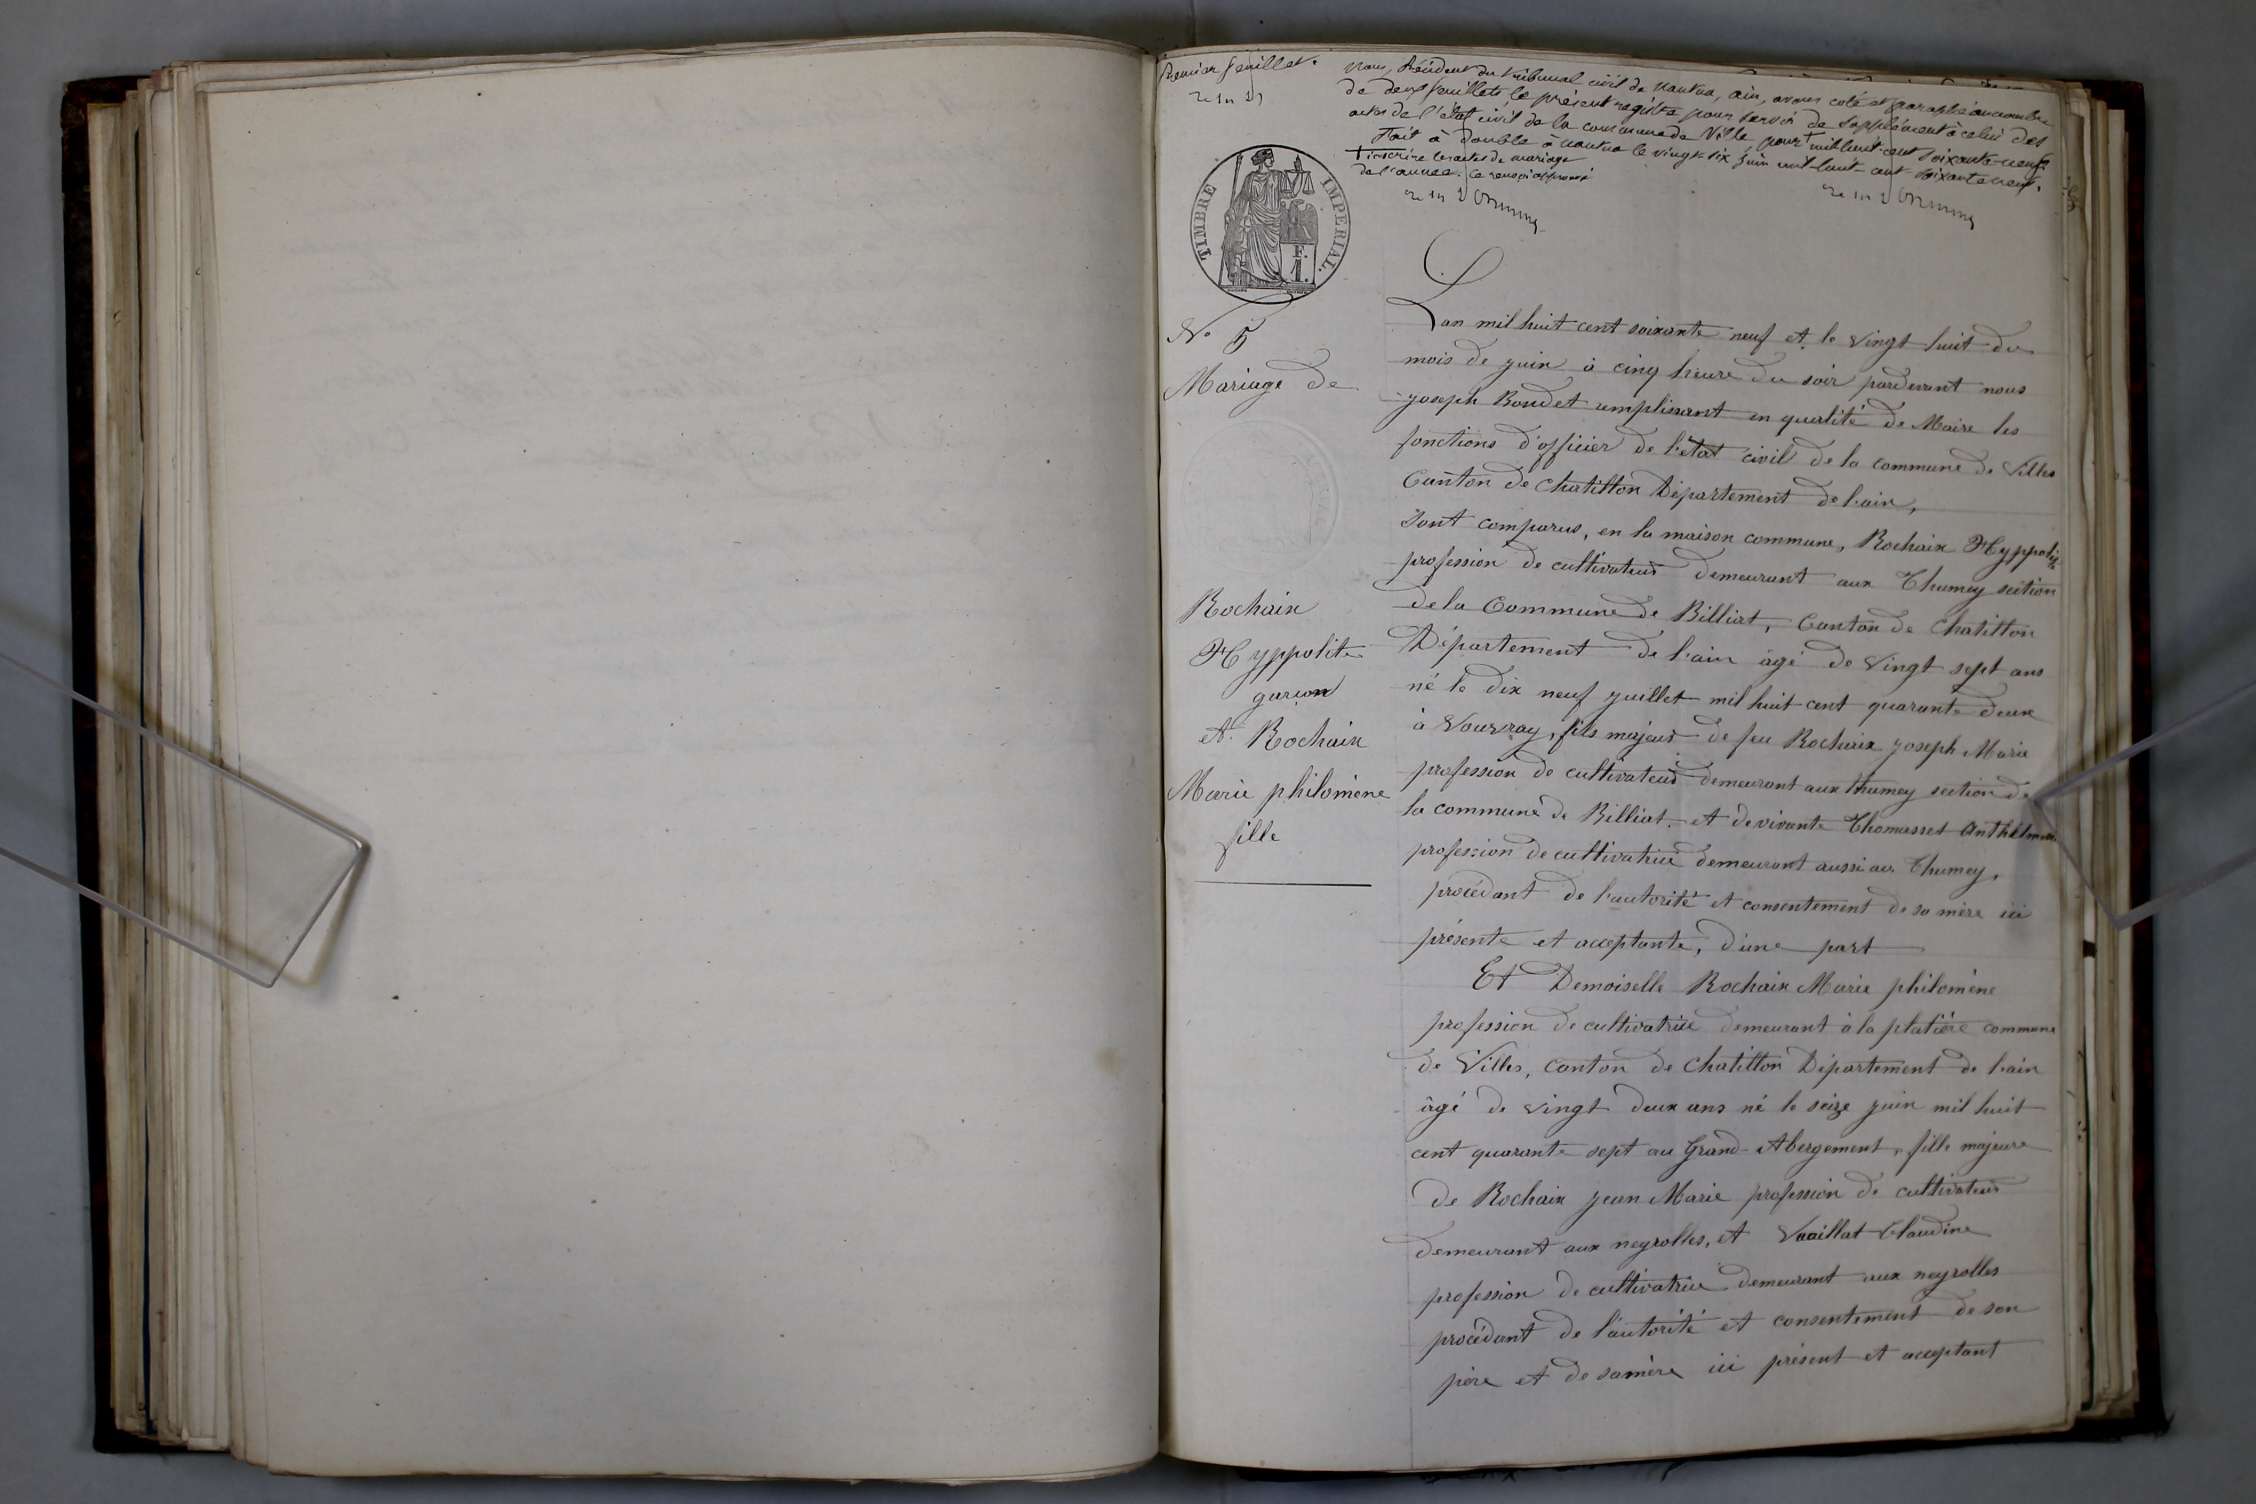 Premier feuillet.
Nous, Président du tribunal civil de Nantua, ain, avons coté et paraphé au nombre
de deux feuillets le présent registre pour servir de supplément à celui des
actes de l'état civil de la commune de Ville, pour mil huit cent soixante-neuf
Fait à double à Nantua le vingt-six juin mil huit-cent-soixante neuf.
inscrire les actes de mariage
de l'année. Ce renvoi approuvé
TIMBRE IMPÉRIAL.
F.
1.
No 5
Mariage de
Rochaix
Hyppolite
garçon
et Rochaix
Marie philomène
fille
L'an mil huit cent soixante neuf et le vingt huit du
mois de juin à cinq heure du soir pardevant nous
joseph Boudet remplissant en qualité de Maire les
fonctions d'officier de l'état civil de la commune de Villes
Canton de Chatillon Département de l'ain,
Sont comparus, en la maison commune, Rochaix Hyppolite
profession de cultivateur demeurant aux Thumey section
de la Commune de Billiat, Canton de Chatillon
Département de l'ain âgé de vingt sept ans
né le dix neuf juillet mil huit cent quarante deux
à Vouvray, fils majeur de feu Rochaix joseph Marie
profession de cultivateur demeurant aux thumey section de
la commune de Billiat. et de vivante Thomasset Anthelmette
profession de cultivatrice demeurant aussi au Thumey,
procédant de l'autorité et consentement de sa mère ici
présente et acceptante, d'une part
Et Demoiselle Rochaix Marie philomène
profession de cultivatrice demeurant à la platière commune
de Villes, canton de Chatillon Département de l'ain
âgé de vingt deux ans né le seize juin mil huit
cent quarante sept au Grand-Abergement, fille majeure
de Rochaix jean Marie profession de cultivateur
demeurant aux neyrolles, et Vuaillat Claudine
profession de cultivatrice demeurant aux neyrolles
procédant de l'autorité et consentement de son
père et de sa mère ici présent et acceptant